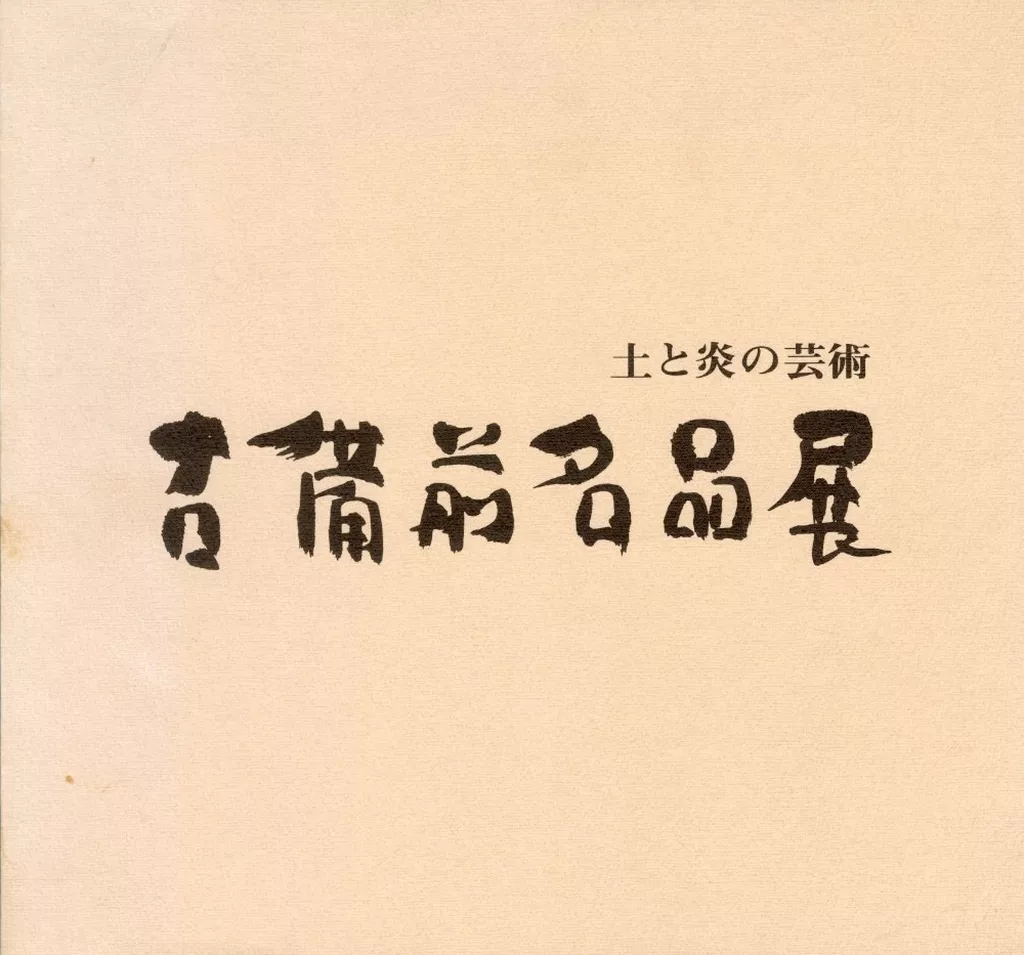 土と炎の芸術
古備前名品展